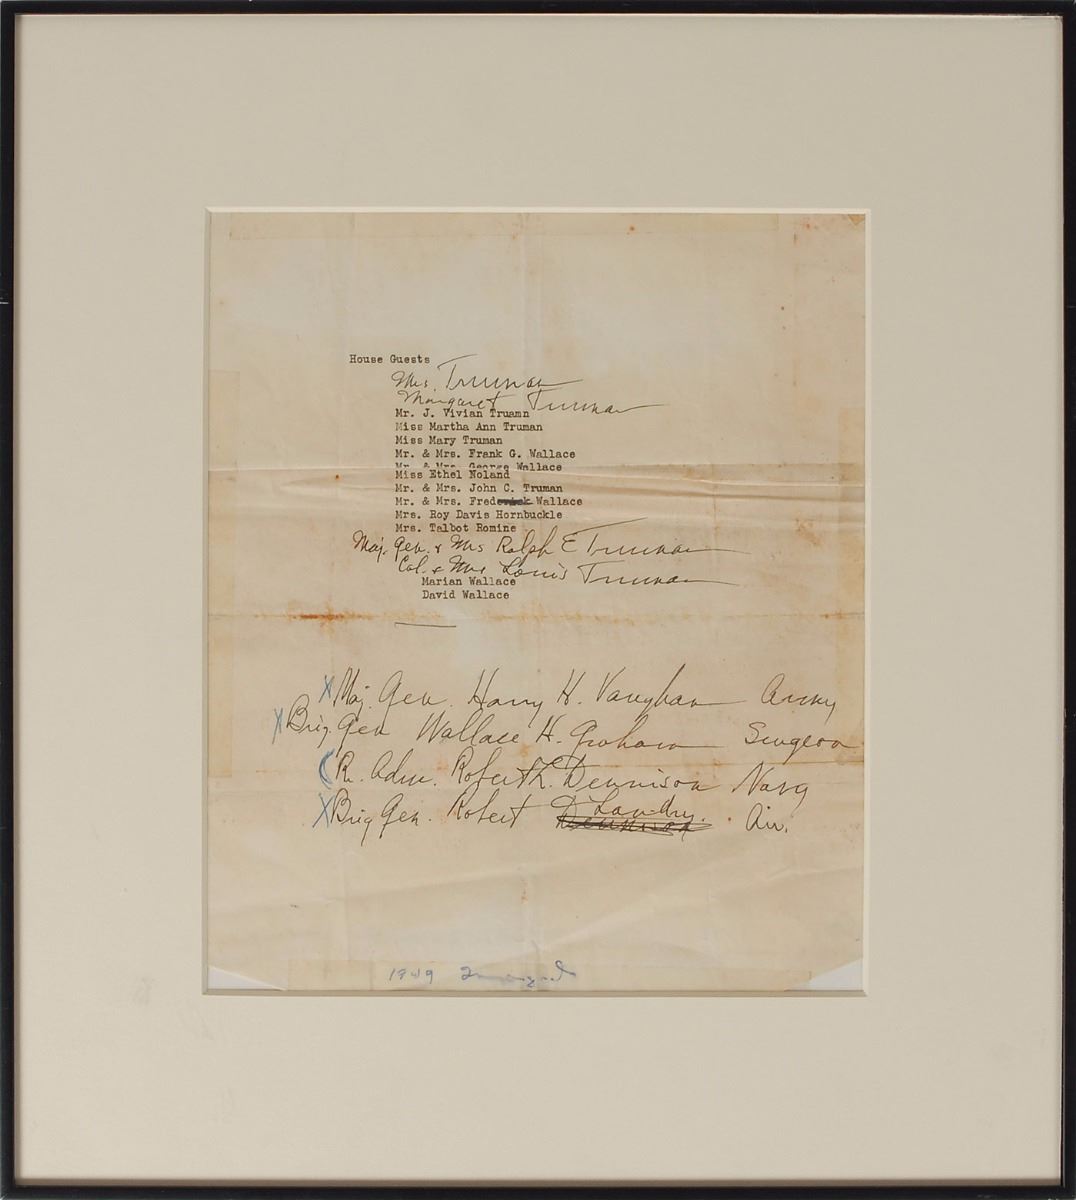 House Guests
Mrs. Truman
Margaret Truman
Mr. J. Vivian Truamn
Miss Martha Ann Truman
Miss Mary Truman
Mr. & Mrs. Frank G. Wallace
Mr. & Mrs. George Wallace
Miss Ethel Noland
Mr. & Mrs. John C. Truman
Mr. & Mrs. Frederick Wallace
Mrs. Roy Davis Hornbuckle
Mrs. Talbot Romine
Maj. Gen. & Mrs Ralph E Truman
Col. & Mrs Louis Truman
Marian Wallace
David Wallace
X Maj. Gen. Harry H. Vaughan Army
X Brig. Gen Wallace H. Graham Surgeon
( R. Adm. Robert L. Dennison Navy
Landry.
X Brig Gen. Robert Dennison Air.
1949